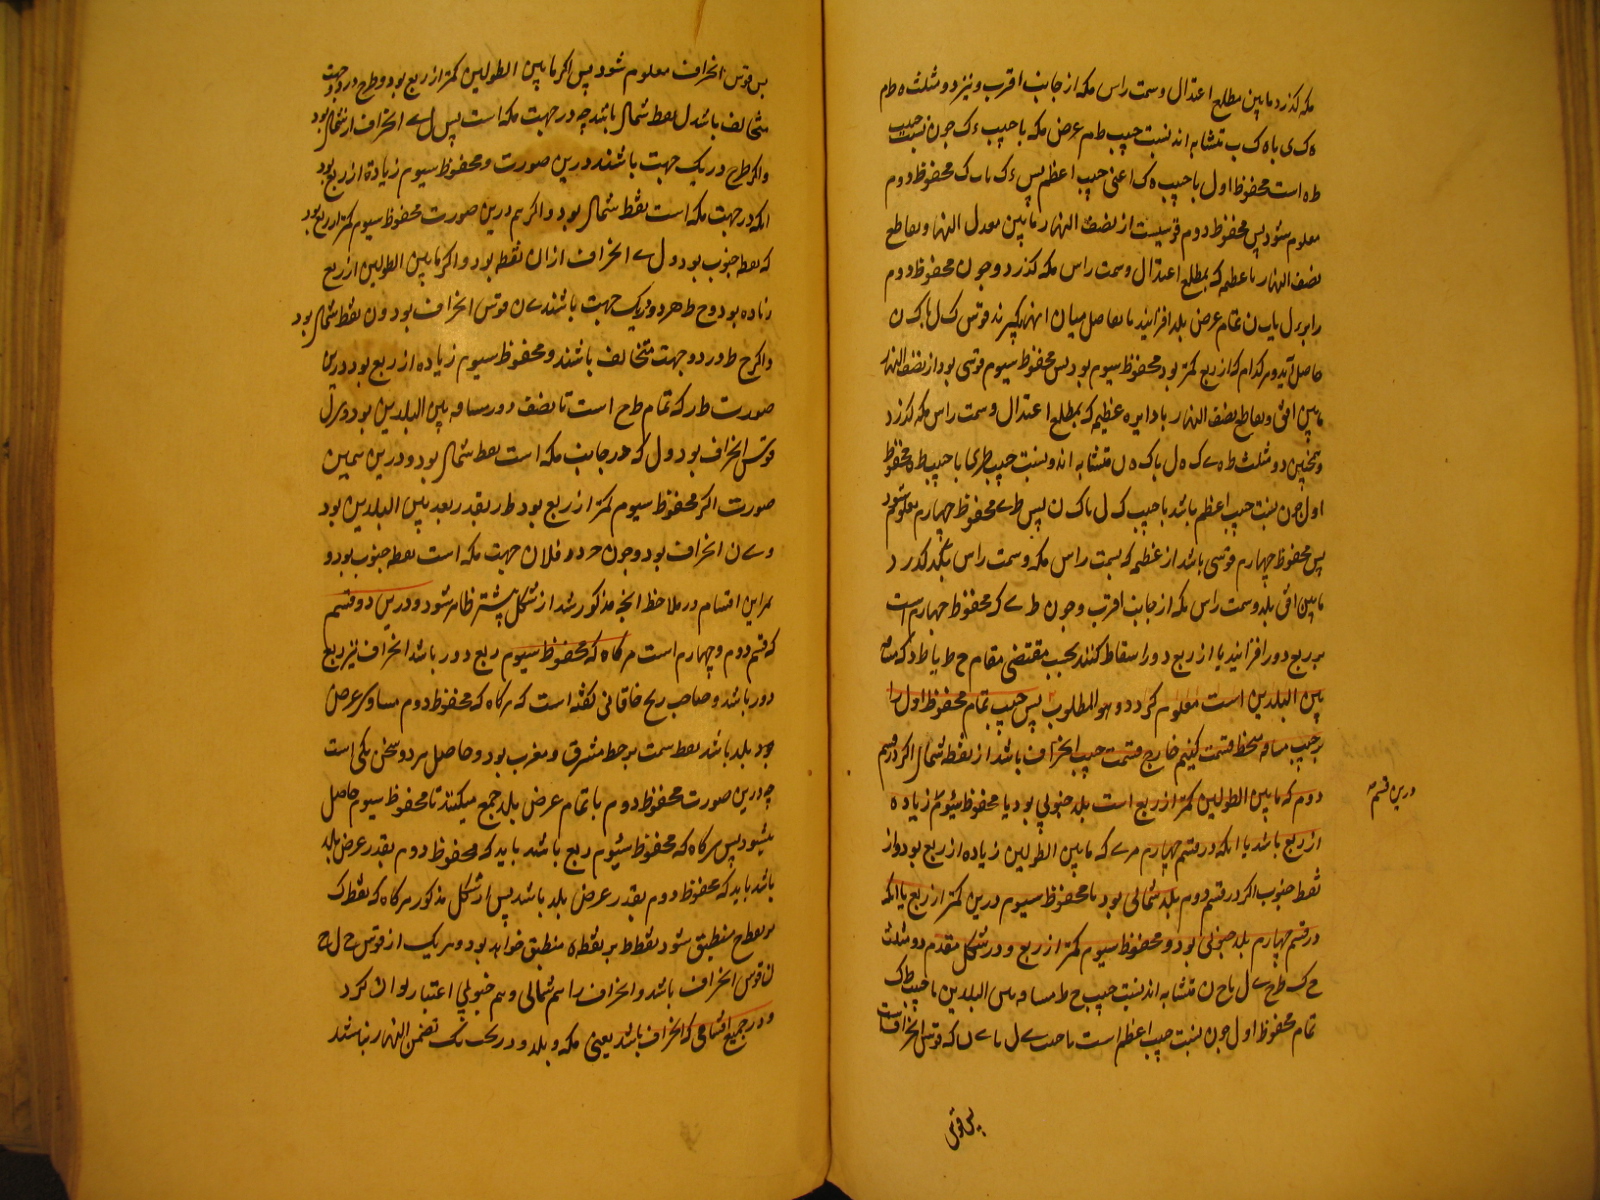 مکه گذرد مابین مطلع اعتدال و سمت راس مکه از جانب اقرب و نیز دو مثلث ه ط م
ه ک ی با ه ک ب متشابه اند نسبت جیب ط م عرض مکه با جیب ء ک چون نسبت جیب
ط ه است محفوظ اول با جیب ه ک اعنی جیب اعظم پس ء ک با ب ک محفوظ دوم
معلوم شود پس محفوظ دوم قوسیست از نصف النهار مابین معدل النهار و تقاطع
نصف النهار با عظیمه که بمطلع اعتدال و سمت راس مکه گذرد و چون محفوظ دوم
را بر ب ل یا ب ن تمام عرض بلد افزایند یا تفاضل میان اینها بگیرند قوس ک ل یا ک ن
حاصل آید و هر کدام که از ربع کمتر بود محفوظ سیوم بود پس محفوظ سیوم قوسی بود از نصف النهار
مابین افق و تقاطع نصف النهار با دایره عظیمه که بمطلع اعتدال و سمت راس مکه گذرد
و همچنین دو مثلث ط ه ے ک ه ل با ک ه ن متشابه اند و نسبت جیب ط ی با جیب ط ه محفوظ
اول چون نسبت جیب اعظم باشد با جیب ک ل یا ک ن پس ط ے محفوظ چهارم معلوم شود
پس محفوظ چهارم قوسی باشد از عظیمه که بسمت راس مکه و سمت راس بلد گذرد
مابین افق بلد و سمت راس مکه از جانب اقرب و چون ط ے که محفوظ چهارم است
بر ربع دور افزایند یا از ربع دور اسقاط کنند بحسب مقتضی مقام ح ط یا ط د که مسافه
بین البلدین است معلوم گردد و هو المطلوب پس جیب تمام محفوظ اول را
بر جیب مسافه منحط قسمت کنیم خارج قسمت جیب انحراف باشد از نقطه شمال اگر در قسم
دوم که مابین الطولین کمتر از ربع است بلد جنوبی بود یا محفوظ سیوم زیاده
درین قسم
از ربع باشد یا انکه در قسم چهارم که مابین الطولین زیاده از ربع بود و از
نقطه جنوب اگر در قسم دوم بلد شمالی بود یا محفوظ سیوم درین کمتر از ربع یا انکه
در قسم چهارم بلد جنوبی بود و محفوظ سیوم کمتر از ربع و در شکل مقدم دو مثلث
ح ک ط ح ے ل یا ح ن متشابه اند نسبت جیب ح ط مسافه بین البلدین با جیب ط ک
تمام محفوظ اول چون نسبت جیب اعظم است با جیب ے ل یا ے ن که قوس انحرافست
پس قوس
پس قوس انحراف معلوم شود پس اگر مابین الطولین کمتر از ربع بود و ط ح در دو جهت
متخالف باشد ل نقطه شمال باشد چه در جهت مکه است پس ل ے انحراف از شمال بود
و اگر ط ح در یک جهت باشند درین صورت و محفوظ سیوم زیاده از ربع بود
انکه در جهت مکه است نقطه شمال بود و اگر هم درین صورت محفوظ سیوم کمتر از ربع بود
که نقطه جنوب بود و ل ے انحراف ازان نقطه بود و اگر مابین الطولین از ربع
زیاده بود و ح ط هر دو در یک جهت باشند ے ن قوس انحراف بود و ن نقطه شمال بود
و اگر ح ط در دو جهت متخالف باشند و محفوظ سیوم زیاده از ربع بود درین
صورت ط ر که تمام ط ح است تا نصف دور مسافه بین البلدین بود و ے ل
قوس انحراف بود و ل که در جانب مکه است نقطه شمال بود و درین همین
صورت اگر محفوظ سیوم کمتر از ربع بود ط ر بقدر بعد بین البلدین بود
و ے ن انحراف بود و چون در فلان جهت مکه است نقطه جنوب بود و
سایر این اقسام در ملاحظه انچه مذکور شد از شکل پیشتر ظاهر شود و درین دو قسم
که قسم دوم و چهارم است هر گاه که محفوظ سیوم ربع دور باشد انحراف نیز ربع
دور باشد و صاحب زیج خاقانی گفته است که هر گاه که محفوظ دوم مساوی عرض
بلد باشد نقطه سمت بر خط مشرق و مغرب بود و حاصل هر دو سخن یکی است
چه درین صورت محفوظ دوم با تمام عرض بلد جمع میکنند تا محفوظ سیوم حاصل
میشود پس هر گاه که محفوظ سیوم ربع باشد باید که محفوظ دوم بقدر عرض بلد
باشد باید که محفوظ دوم بقدر عرض بلد باشد پس از شکل مذکور هر گاه که نقطه ک
بر نقطه ح منطبق شود نقطه ط بر نقطه ه منطبق خواهد بود و هر یک از قوس ے ل ے
ن قوس انحراف باشد و انحراف را هم شمالی و هم جنوبی اعتبار توان کرد
و در جمیع اقسامی که انحراف باشد یعنی مکه و بلد در تحت یک نصف النهار نباشند